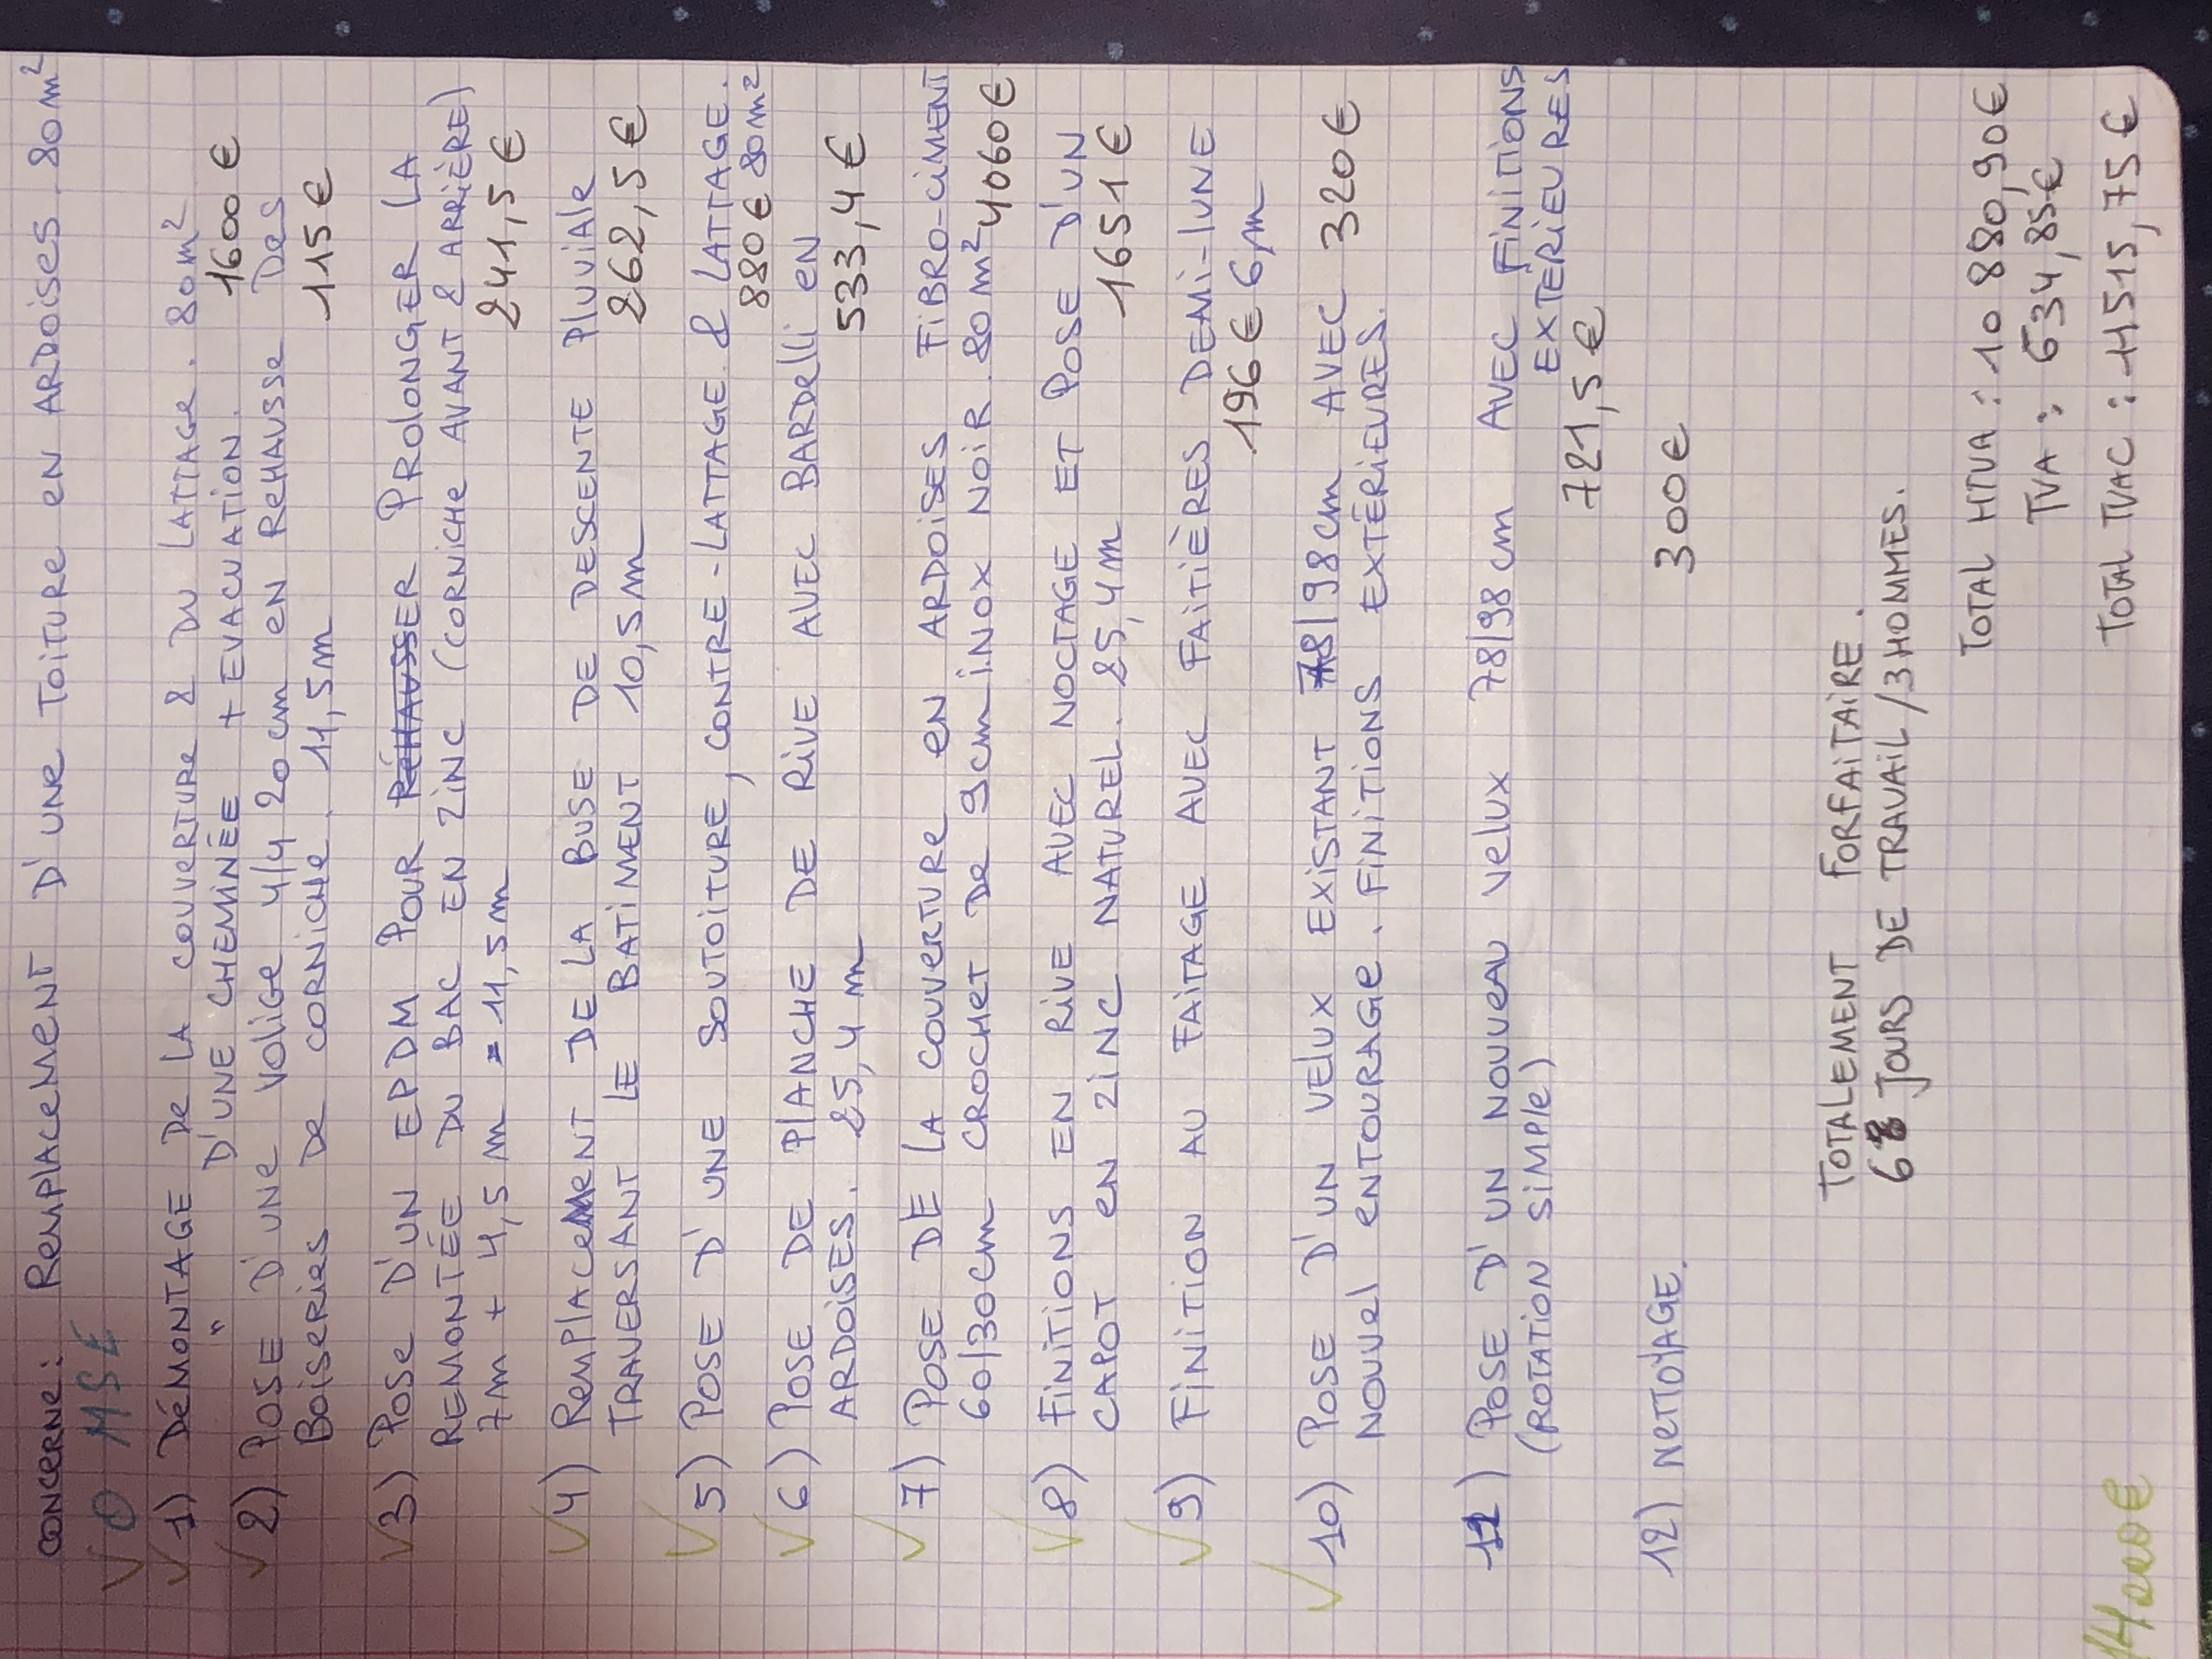 CONCERNE: REMPLACEMENT D'UNE TOITURE EN ARDOISES. 80m²
O MSE
1) DÉMONTAGE DE LA COUVERTURE & DU LATTAGE. 80m²
" D'UNE CHEMINÉE + EVACUATION. 1600€
2) POSE D'UNE VOLIGE 4/4 20cm EN REHAUSSE DES
BOISERIES DE CORNICHE. 11,5m 115€
3) POSE D'UN EPDM POUR REHAUSSER PROLONGER LA
REMONTÉE DU BAC EN ZINC (CORNICHE AVANT & ARRIÈRE)
7m + 4,5m = 11,5m 241,5€
4) REMPLACEMENT DE LA BUSE DE DESCENTE PLUVIALE
TRAVERSANT LE BATIMENT 10,5m 262,5€
5) POSE D'UNE SOUTOITURE, CONTRE-LATTAGE & LATTAGE.
880€ 80m²
6) POSE DE PLANCHE DE RIVE AVEC BARDELLI EN
ARDOISES. 25,4m 533,4€
7) POSE DE LA COUVERTURE EN ARDOISES FIBRO-CIMENT
60/30cm CROCHET DE 9cm INOX NOIR. 80m² 4060€
8) FINITIONS EN RIVE AVEC NOCTAGE ET POSE D'UN
CAPOT EN ZINC NATUREL. 25,4m 1651€
9) FINITION AU FAITAGE AVEC FAITIÈRES DEMI-LUNE
196€ 6m
10) POSE D'UN VELUX EXISTANT 78/98cm AVEC 320€
NOUVEL ENTOURAGE. FINITIONS EXTÉRIEURES.
11) POSE D'UN NOUVEAU VELUX 78/98cm AVEC FINITIONS
(ROTATION SIMPLE) EXTÉRIEURES
721,5€
12) NETTOYAGE. 300€
TOTALEMENT FORFAITAIRE.
6 JOURS DE TRAVAIL/3HOMMES.
TOTAL HTVA: 10 880,90€
TVA: 634,85€
TOTAL TVAC: 11515,75€